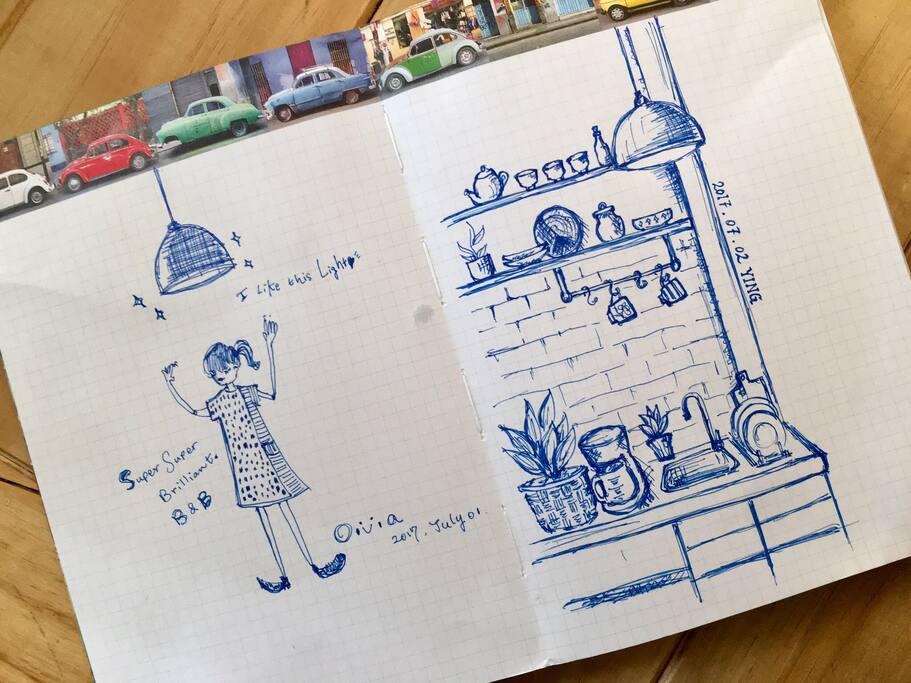 I Like this Light
Super Super
Brilliant.
B&B
Olivia
2017. July 01.
2017. 07. 02 YING